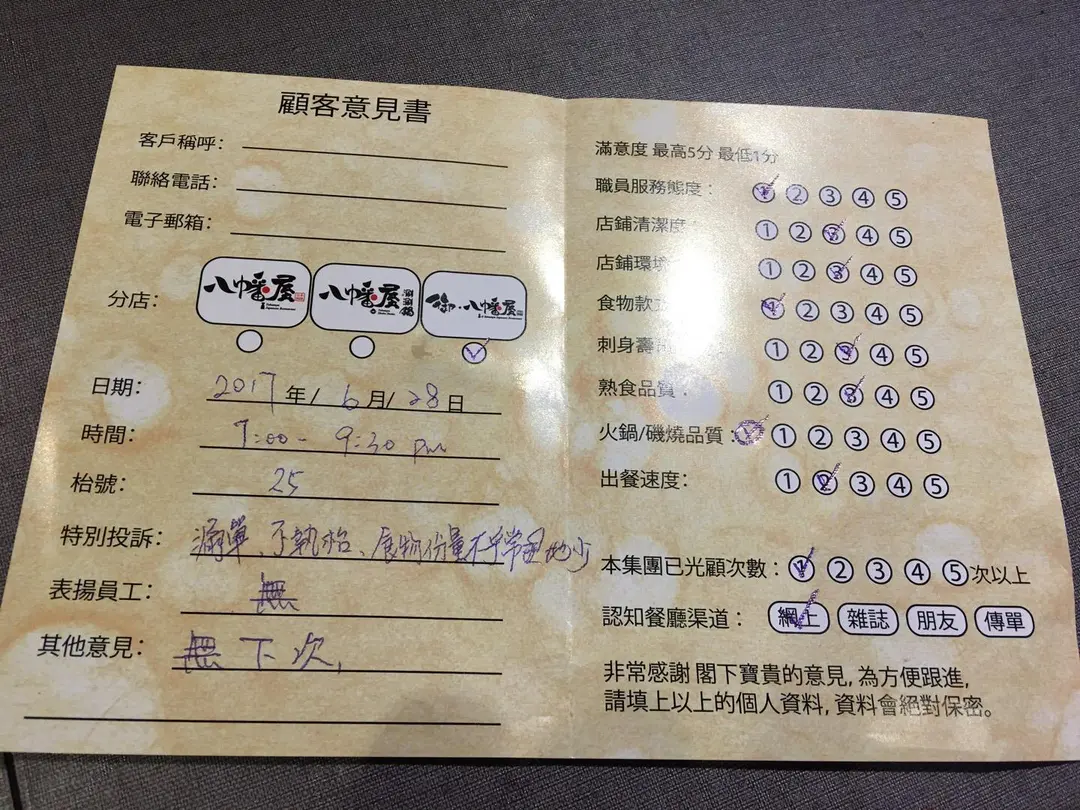 顧客意見書
客戶稱呼：
聯絡電話：
電子郵箱：
分店： 八幡屋 八幡屋 御·八幡屋
日期： 2017年/ 6月/ 28日
時間： 7:00 - 9:30 pm
枱號： 25
特別投訴： 漏單、不執枱、食物份量不乎常理地少
表揚員工： 無
其他意見： 無 下次,
滿意度 最高5分 最低1分
職員服務態度： 1 2 3 4 5
店鋪清潔度： 1 2 3 4 5
店鋪環境 1 2 3 4 5
食物款式 1 2 3 4 5
刺身壽司 1 2 3 4 5
熟食品質： 1 2 3 4 5
火鍋/磯燒品質： 1 2 3 4 5
出餐速度： 1 2 3 4 5
本集團已光顧次數： 1 2 3 4 5 次以上
認知餐廳渠道： 網上 雜誌 朋友 傳單
非常感謝 閣下寶貴的意見, 為方便跟進,
請填上以上的個人資料, 資料會絕對保密。